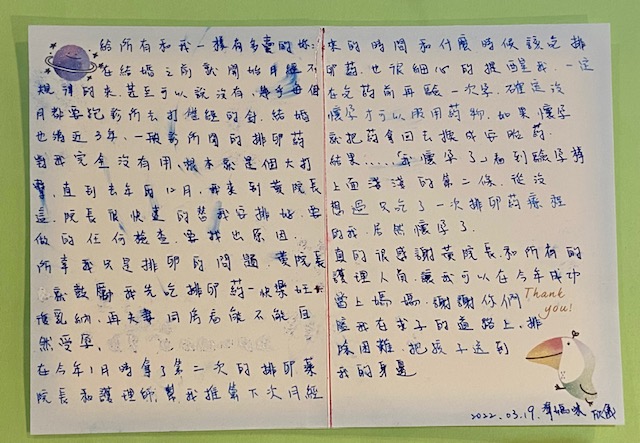 給所有和我一樣有多囊的妳:
在結婚之前就開始月經不
規律的來,甚至可以說沒有,幾乎每個
月都要跑診所去打催經的針,結婚
也將近3年,一般診所開的排卵藥
對我完全沒有用,根本就是個大打
擊,直到去年的12月,我來到黃院長
這,院長很快速的替我安排好,要
做的任何檢查,要找出原因.
所幸我只是排卵的問題,黃院長
就鼓勵我先吃排卵藥-快樂妊
復乳納,再夫妻同房看能不能自
然受孕.
在今年1月時拿了第二次的排卵藥
院長和護理師,幫我推算下次月經
來的時間和什麼時候該吃排
卵藥.也很細心的提醒我,一定
在吃藥前再驗一次孕,確定沒
懷孕才可以服用藥物,如果懷孕
就把藥拿回去換成安胎藥.
結果.....「我懷孕了」看到驗孕棒
上面淺淺的第二條,從沒
想過只吃了一次排卵藥療程
的我,居然懷孕了.
真的很感謝黃院長,和所有的
護理人員,讓我可以在今年成功
當上媽媽,謝謝你們
陪我在求子的道路上,排
除困難,把孩子送到
我的身邊
Thank
you!
2022.03.19.準媽咪 欣儀